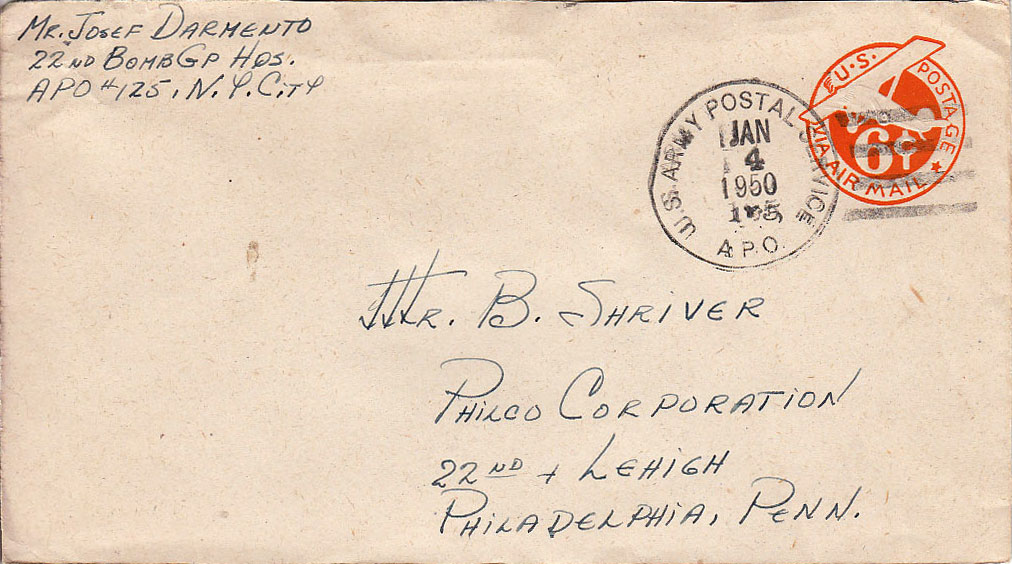 Mr. Josef Darmento
22nd Bomb Gp Hqs.
APO #125, N.Y. City
U.S. ARMY POSTAL SERVICE
JAN
4
1950
A.P.O.
U.S. POSTAGE
6¢
VIA AIR MAIL
Mr. B. Shriver
Philco Corporation
22nd + Lehigh
Philadelphia, Penn.